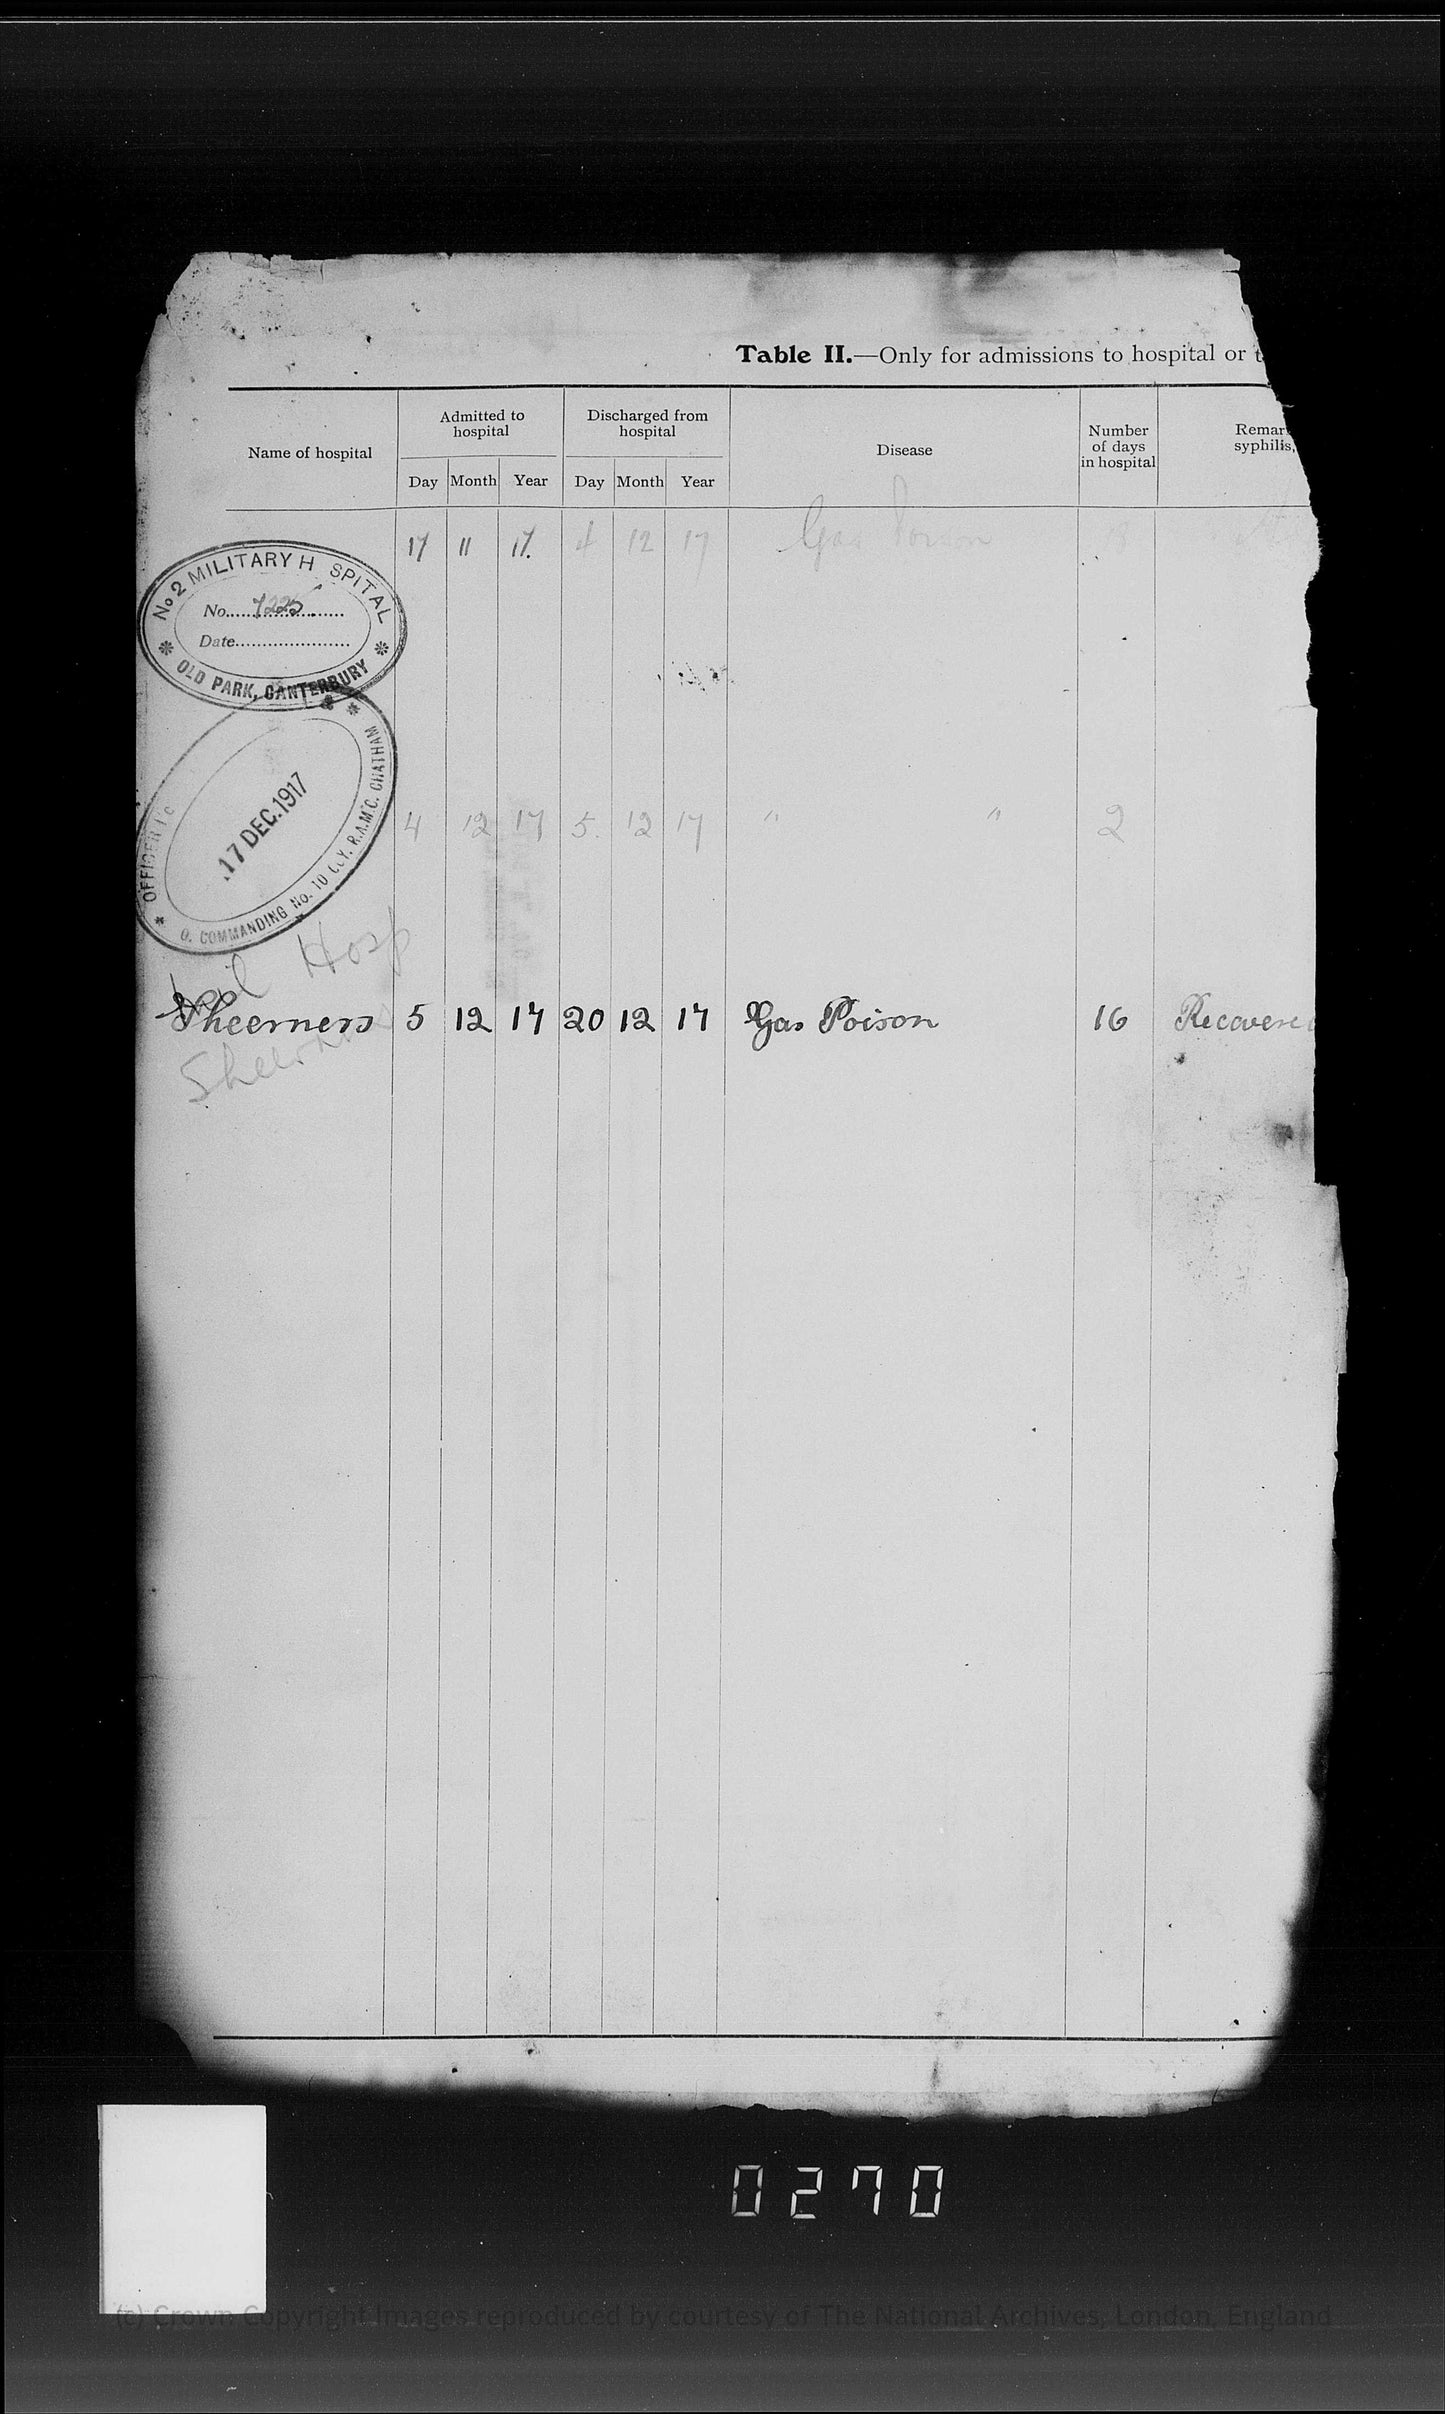 Table II.—Only for admissions to hospital or
Name of hospital
Admitted to hospital
Discharged from hospital
Disease
Number of days in hospital
Remar
syphilis,
Day Month Year Day Month Year
17 11 17. 4 12 17 Gas Poison 18
No 2 MILITARY H SPITAL
No. 7225
Date
OLD PARK, CANTERBURY
4 12 17 5. 12 17 " " 2
OFFICER I/c
17 DEC. 1917
O. COMMANDING No. 10 CoY. R.A.M.C. CHATHAM
Mil Hosp
Sheerness 5 12 17 20 12 17 Gas Poison 16 Recovered
0270
(c) Crown Copyright Images reproduced by courtesy of The National Archives, London, England